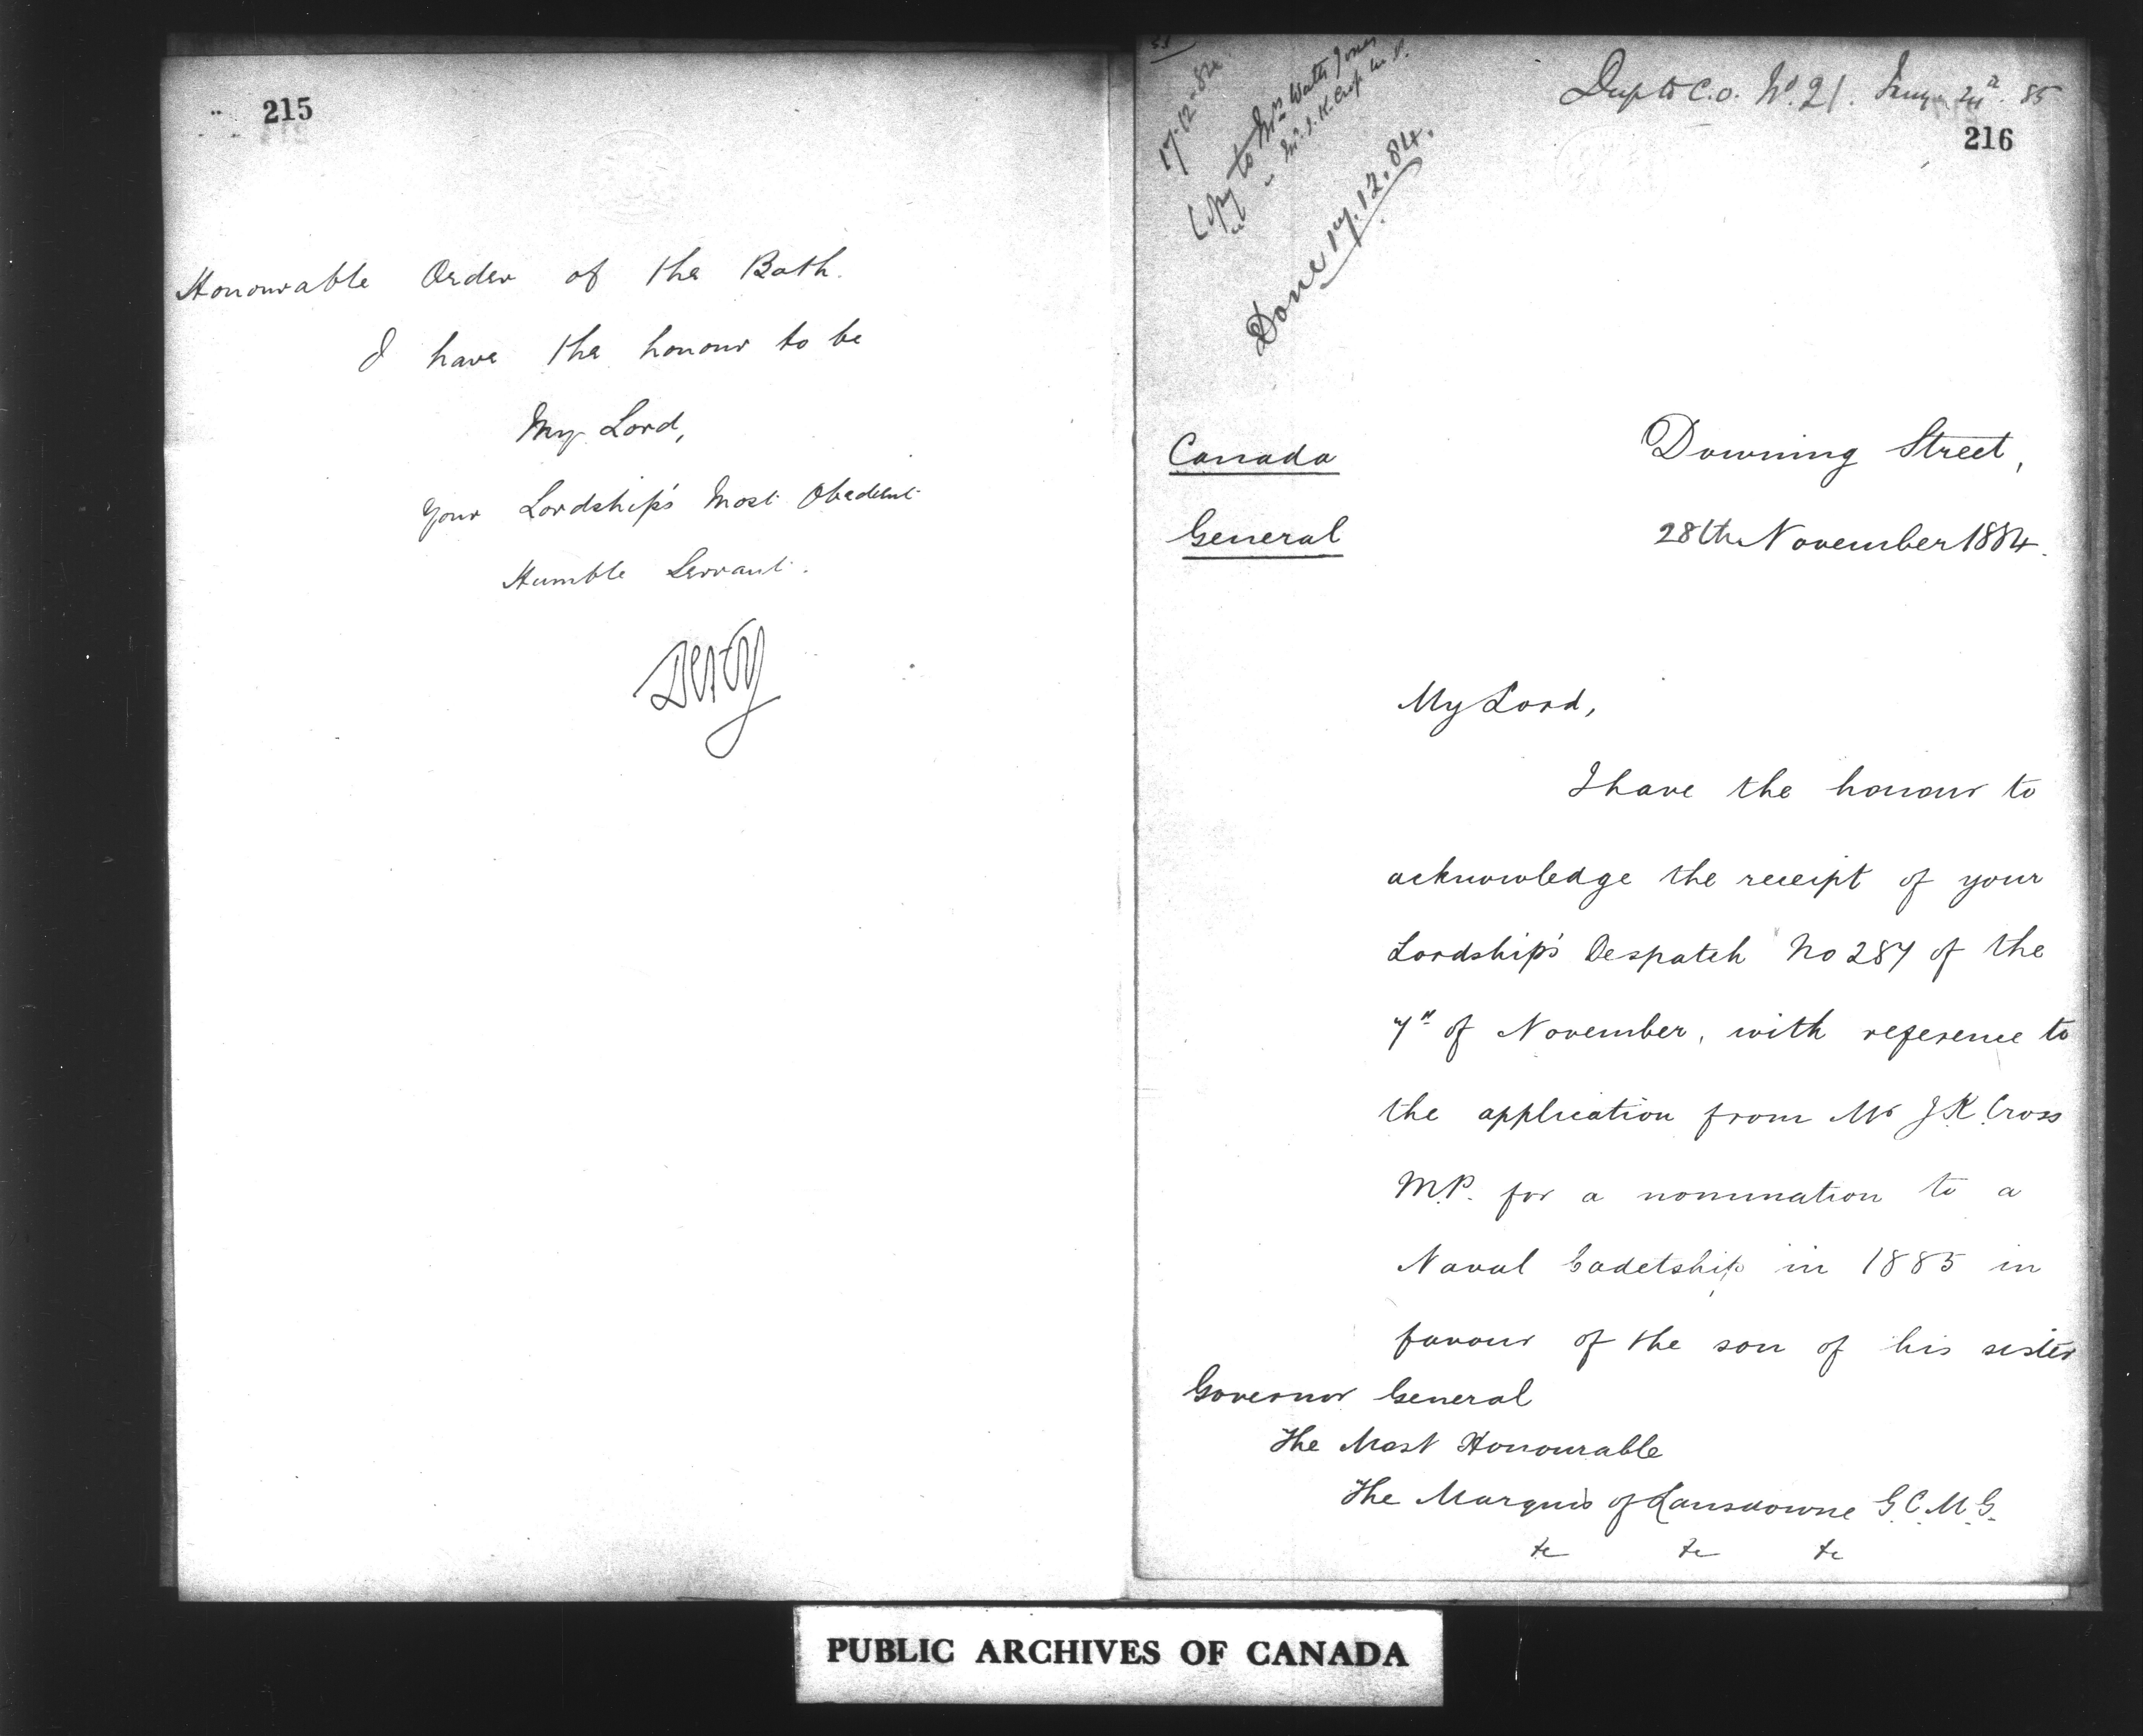 215
Honourable Order of the Bath.
I have the honour to be
My Lord,
Your Lordship's Most Obedient
Humble Servant.
Derby
17-12-84
Copy to Mrs Watts Jones
" Mr. J. K. Cross M.P.
Done 17.12.84.
Desp to C.O. No. 21. Jany 85
216
Canada
General
Downing Street,
28th November 1884.
My Lord,
I have the honour to
acknowledge the receipt of your
Lordship's Despatch No 287 of the
7th of November, with reference to
the application from Mr J.K. Cross
M.P. for a nomination to a
Naval Cadetship in 1885 in
favour of the son of his sister
Governor General
The Most Honourable
The Marquis of Lansdowne G.C.M.G.
&c &c &c
PUBLIC ARCHIVES OF CANADA